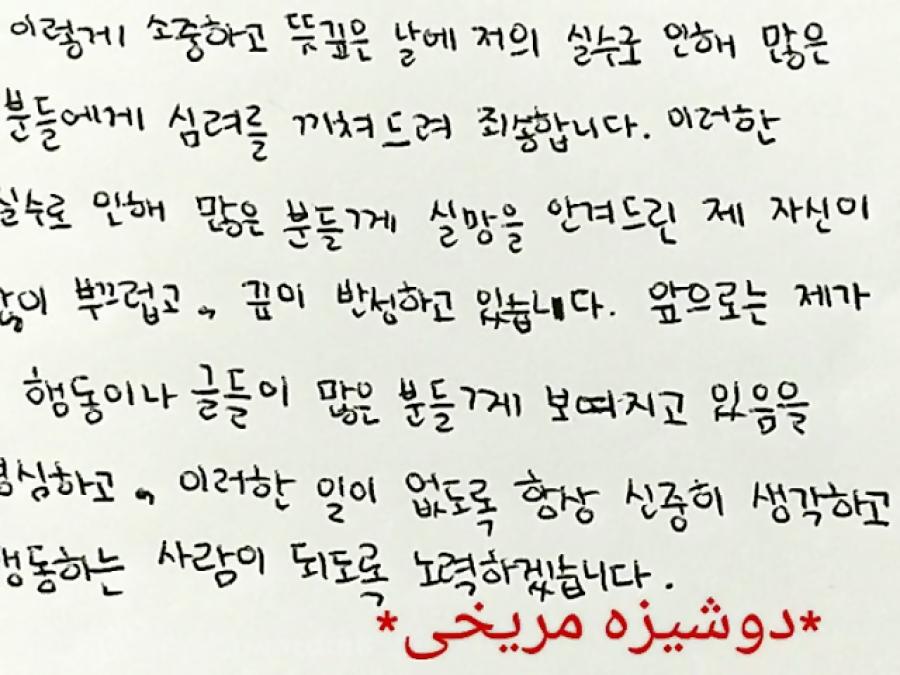 이렇게 소중하고 뜻깊은 날에 저의 실수로 인해 많은
분들에게 심려를 끼쳐드려 죄송합니다. 이러한
실수로 인해 많은 분들께 실망을 안겨드린 제 자신이
많이 부끄럽고, 깊이 반성하고 있습니다. 앞으로는 제가
행동이나 글들이 많은 분들께 보여지고 있음을
명심하고, 이러한 일이 없도록 항상 신중히 생각하고
행동하는 사람이 되도록 노력하겠습니다.
*دوشیزه مریخی*